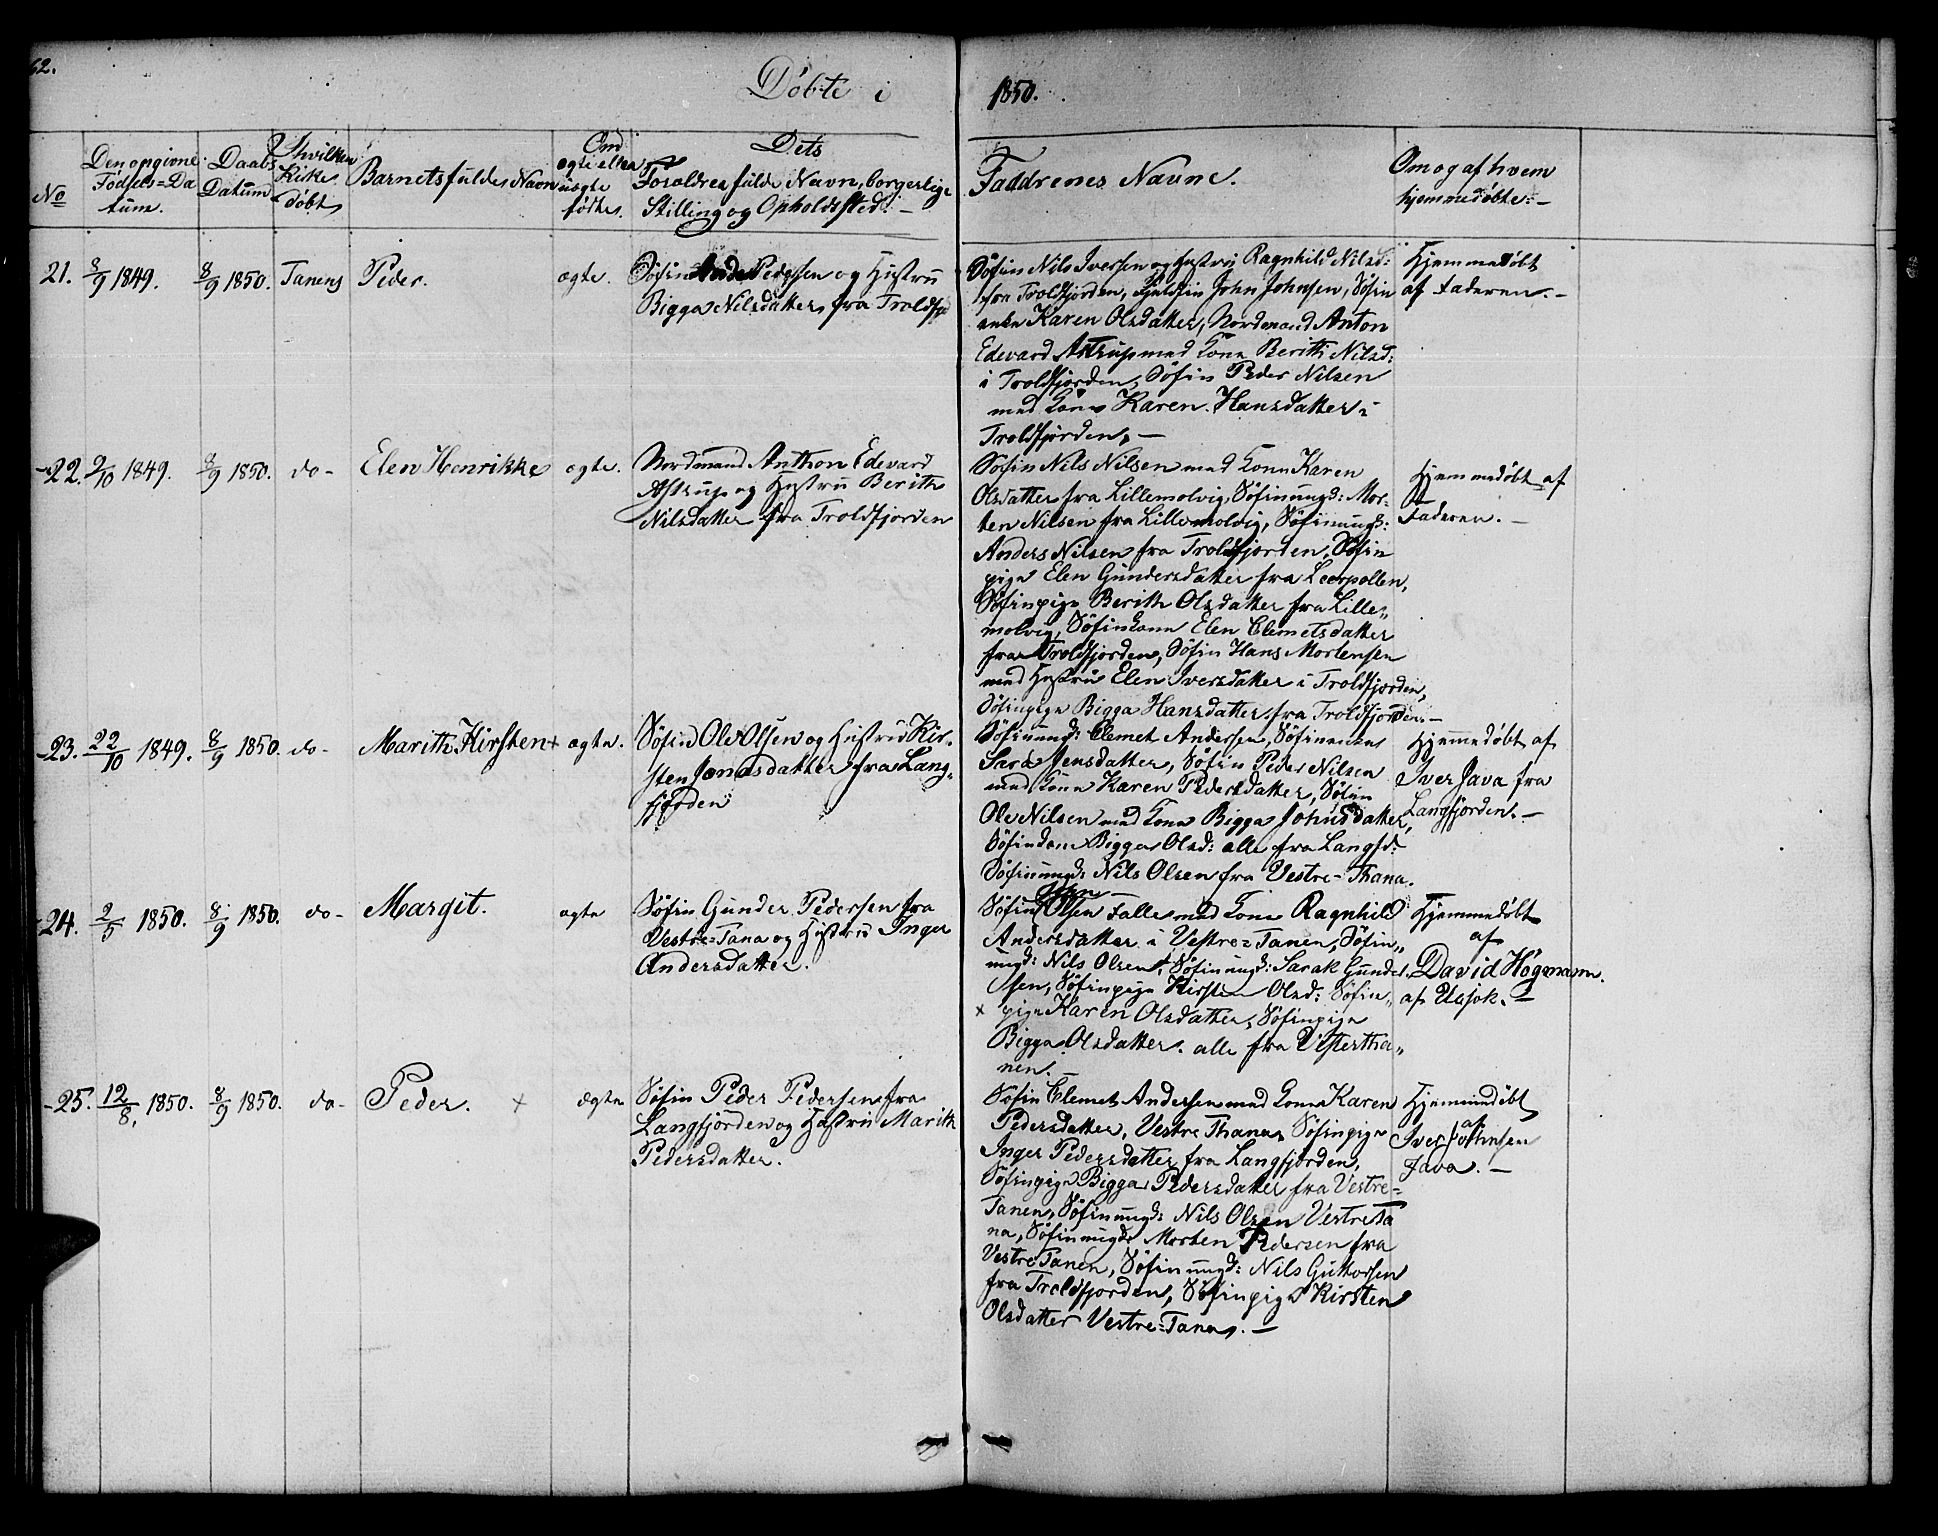 62.
Døbte i
1850.
No
Den opgivne Fødsels=Da tum.
Daabs Datum
I hvilken Kirke døbt
Barnets fulde Navn
Om ægte eller uægte fødte.
Dets Forældres fulde Navn, borgerlige Stilling og Opholdssted. -
Faddrenes Navne.
Om og af hvem hjemmedøbte: -
21. 8/9 1849. 8/9 1850. Tanens Peder. ægte.
Søfin Anders Pedersen og Hustru
Bigga Nilsdatter, fra Troldfj
Søfin Nils Iversen og Hustru Ragnhild Nilsd:
fra Troldfjorden, Fjeldfin John Johnsen, Søfin
enke Karen Olsdatter, Nordmand Anton
Edevard Astrup med Kone Berith Nilsd:
i Troldfjorden, Søfin Peder Nilsen
med Kone Karen Hansdatter i
Troldfjorden, -
Hjemmedøbt
af Faderen. -
-22. 9/10 1849. 8/9 1850. do- Elen Henrikke ægte.
Nordmand Anthon Edevard
Astrup og Hustru Berith
Nilsdatter fra Troldfjorden
Søfin Nils Nilsen med Kone Karen
Olsdatter fra Lillemolvig, Søfinungd: Mor-
ten Nilsen fra Lillemolvig, Søfinungd:
Anders Nilsen fra Troldfjorden, Søfin
pige Elen Gundersdatter fra Leerpollen,
Søfinpige Berith Olsdatter fra Lille-
molvig, Søfinkone Elen Clemetsdatter
fra Troldfjorden, Søfin Hans Mortensen
med Hustru Elen Iversdatter i Troldfjorden,
Søfinpige Bigga Hansdatter fra Troldfjorden. -
Hjemmedøbt af
Faderen. -
-23. 22/10 1849. 8/9 1850. do- Marith Kirsten + ægte.
Søfin Ole Olsen og Hustru Kir-
sten Jonasdatter fra Lang-
fjorden
Søfinungd: Clemet Andersen, Søfinenke
Sara Jensdatter, Søfin Peder Nilsen
med Kone Karen Pedersdatter, Søfin
Ole Nilsen med Kone Bigga Johnsdatter,
Søfinkone Bigga Olsd: alle fra Langfd:
Søfinungd: Nils Olsen fra Vestre-Thana.
Hjemmedøbt af
Iver Java fra
Langfjorden. -
-24. 2/5 1850. 8/9 1850. do- Margit. ægte
Søfin Gunder Pedersen fra
Vestre=Tana og Hustru Inger
Andersdatter.
Søfin Olsen Falle med Kone Ragnhild
Andersdatter i Vestre=Tanen, Søfin-
ungd: Nils Olsen, Søfinungd: Sarak Gunder-
sen, Søfinpige Kirsten Olsd: Søfin-
x pige Karen Olsdatter, Søfinpige
Bigga Olsdatter. alle fra Vestertha-
nen. -
Hjemmedøbt
af
David Högmann.
af Utsjok. -
-25. 12/8. 1850. 8/9 1850. do- Peder. + ægte
Søfin Peder Pedersen fra
Langfjorden og Hustru Marith
Pedersdatter.
Søfin Clemet Andersen med Kone Karen
Pedersdatter, Vestre Thana, Søfinpige
Inger Pedersdatter fra Langfjorden,
Søfinpige Bigga Pedersdatter fra Vestre=
Tanen, Søfinungd: Nils Olsen Vestre Ta
na, Søfinungd: Morten Pedersen fra
Vestre Tanen, Søfinungd: Nils Guttorsen
fra Troldfjorden, Søfinpige Kirsten
Olsdatter Vestre=Tana. -
Hjemmedøbt
af
Iver Johnsen
Java. -